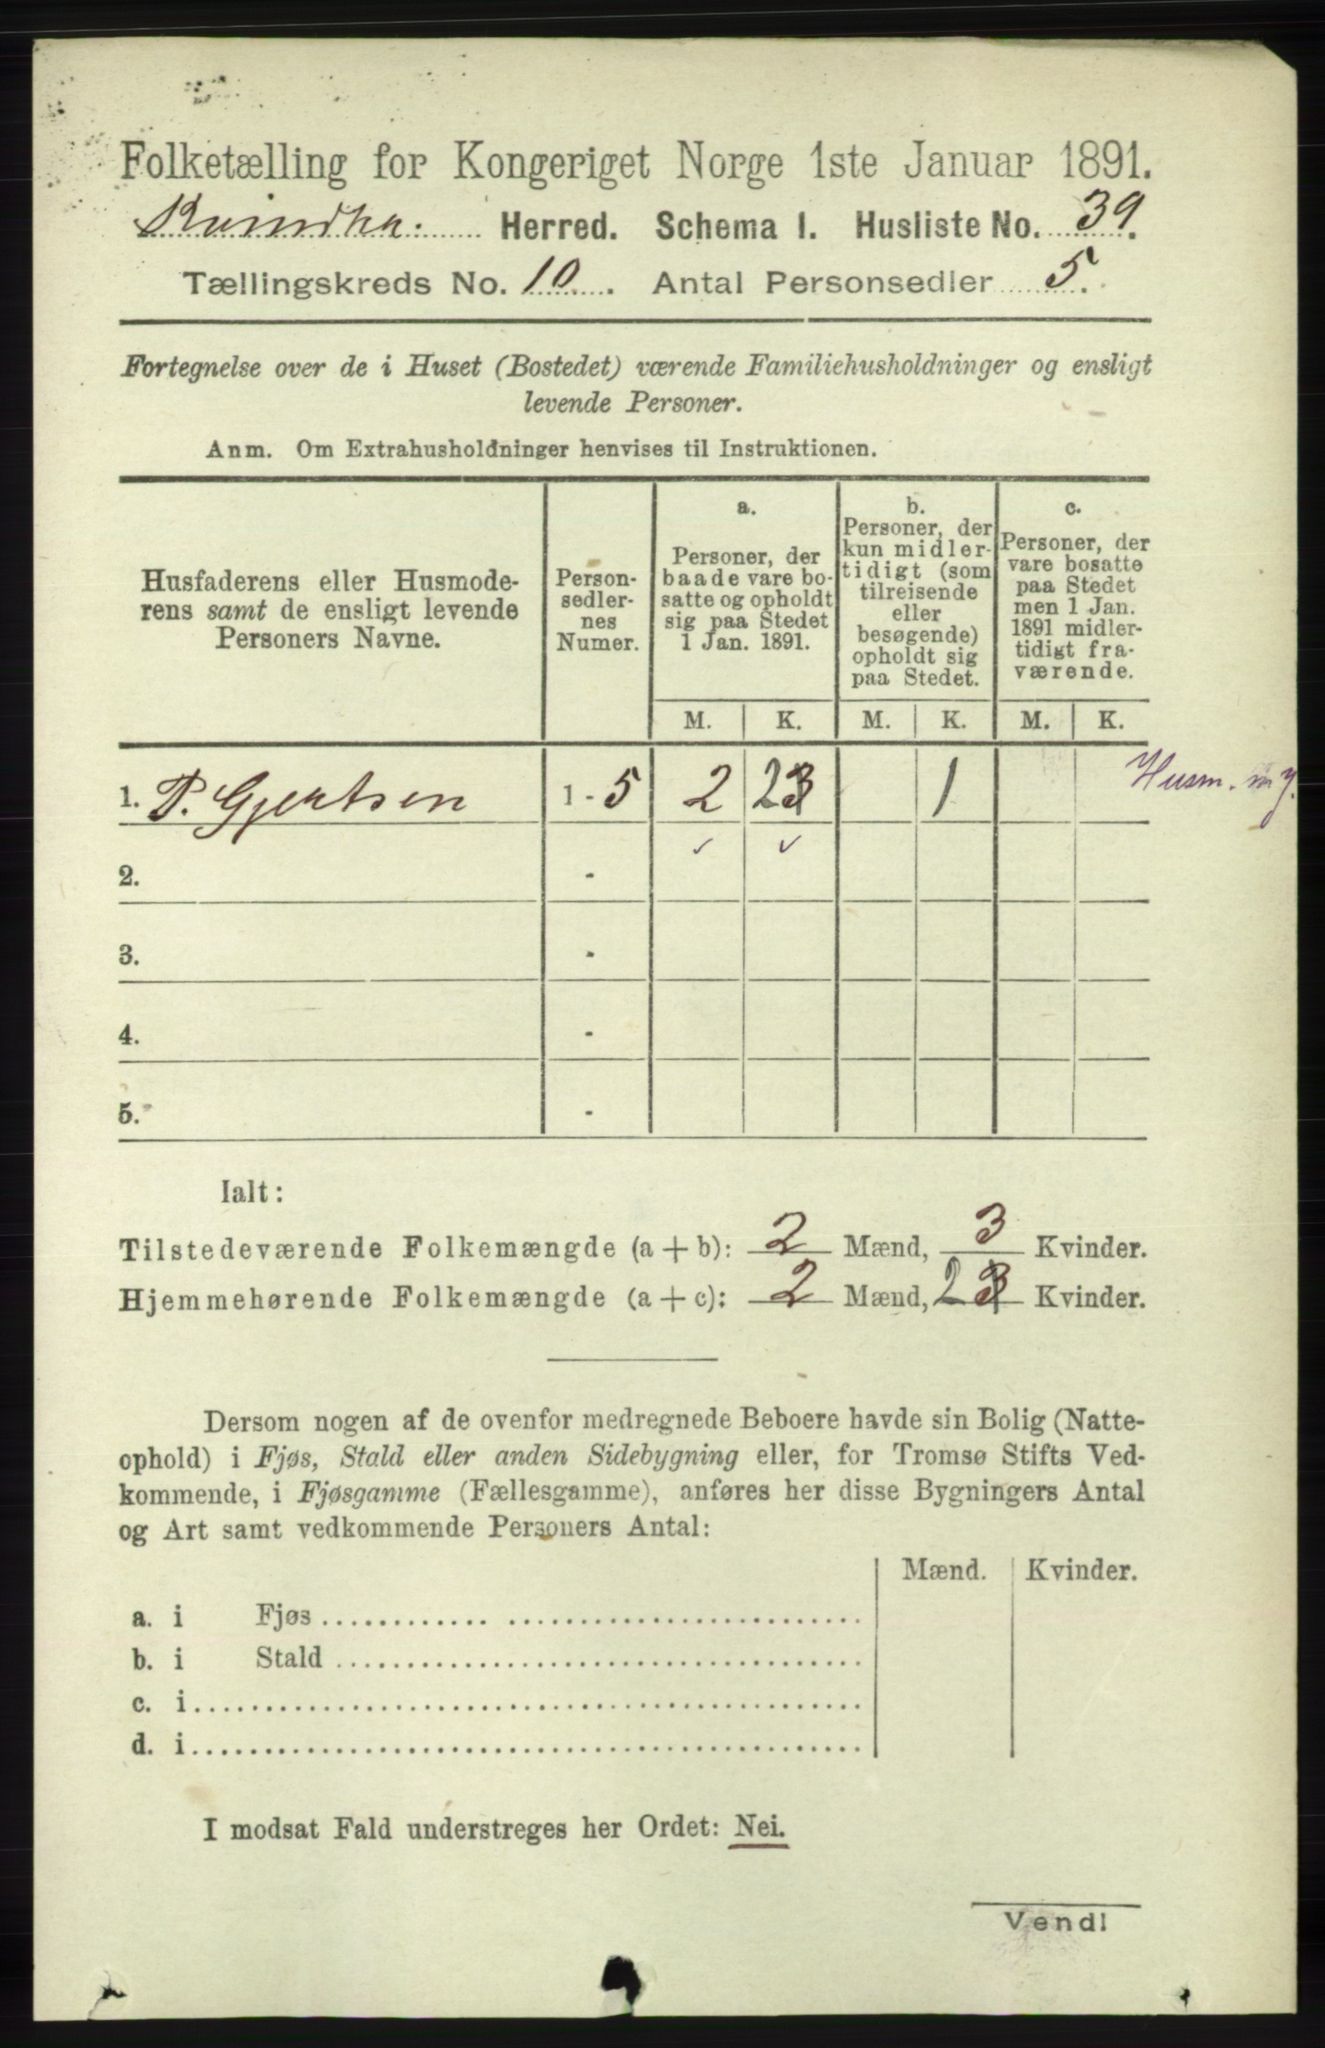 Folketælling for Kongeriget Norge 1ste Januar 1891.
Herred. Schema I. Husliste No. 39.
Tællingskreds No. 10. Antal Personsedler 5.
Fortegnelse over de i Huset (Bostedet) værende Familiehusholdninger og ensligt
levende Personer.
Anm. Om Extrahusholdninger henvises til Instruktionen.
Husfaderens eller Husmode-
rens samt de ensligt levende
Personers Navne.
Person-
sedler-
nes
Numer.
a.
Personer, der
baade vare bo-
satte og opholdt
sig paa Stedet
1 Jan. 1891.
b.
Personer, der
kun midler-
tidigt (som
tilreisende
eller
besøgende)
opholdt sig
paa Stedet.
c.
Personer, der
vare bosatte
paa Stedet
men 1 Jan.
1891 midler-
tidigt fra-
værende.
M. K. M. K. M. K.
1. P. Gjertsen 1 - 5 2 23 1 Husm. m j.
2. -
3. -
4. -
5. -
Ialt:
Tilstedeværende Folkemængde (a + b): 2 Mænd, 3 Kvinder.
Hjemmehørende Folkemængde (a + c): 2 Mænd, 23 Kvinder.
Dersom nogen af de ovenfor medregnede Beboere havde sin Bolig (Natte-
ophold) i Fjøs, Stald eller anden Sidebygning eller, for Tromsø Stifts Ved-
kommende, i Fjøsgamme (Fællesgamme), anføres her disse Bygningers Antal
og Art samt vedkommende Personers Antal:
Mænd. Kvinder.
a. i Fjøs
b. i Stald
c. i
d. i
I modsat Fald understreges her Ordet: Nei.
Vend!